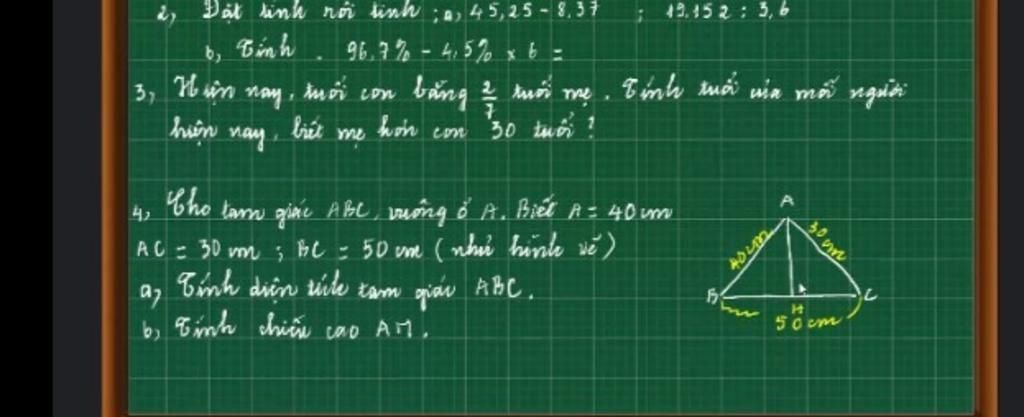 2, Đặt tính rồi tính ; a, 45,25 - 8,37 ; 19.152 : 3,6
b, Tính . 96,7% - 4,5% x 6 =
3, Hiện nay, tuổi con bằng 2/7 tuổi mẹ . Tính tuổi của mỗi người
hiện nay, biết mẹ hơn con 30 tuổi ?
4, Cho tam giác ABC, vuông ở A. Biết A = 40 cm
AC = 30 cm ; BC = 50 cm ( như hình vẽ )
a, Tính diện tích tam giác ABC .
b, Tính chiều cao AH .
A
40cm
30cm
B
H
C
50cm